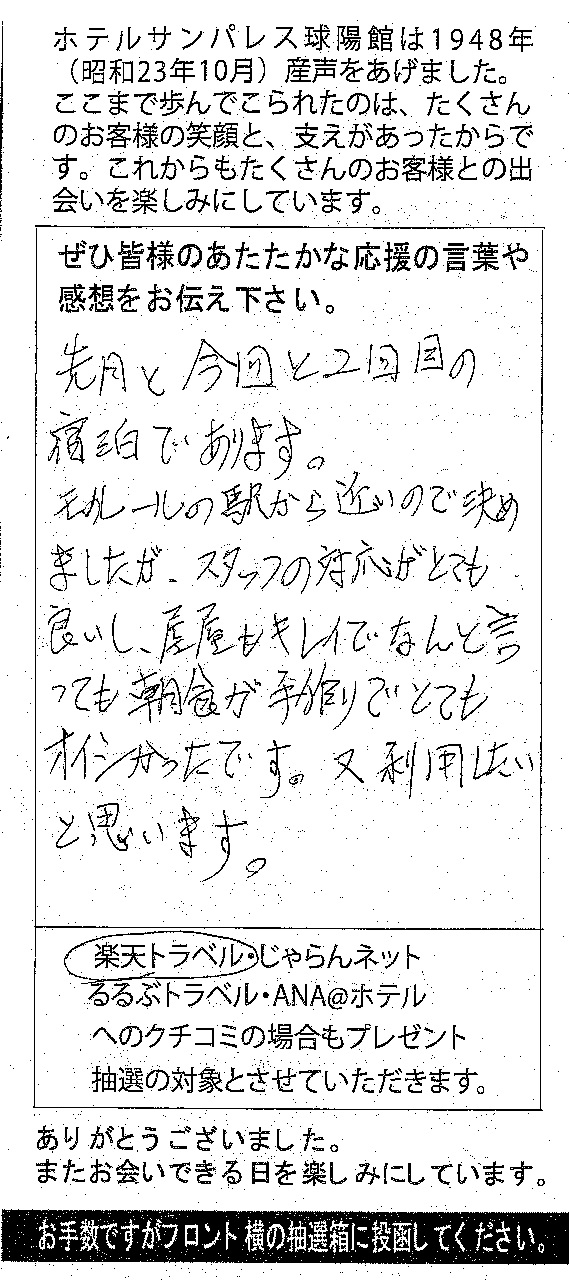 ホテルサンパレス球陽館は1948年
（昭和23年10月）産声をあげました。
ここまで歩んでこられたのは、たくさん
のお客様の笑顔と、支えがあったからで
す。これからもたくさんのお客様との出
会いを楽しみにしています。
ぜひ皆様のあたたかな応援の言葉や
感想をお伝え下さい。
先月と今回と2回目の
宿泊であります。
モノレールの駅から近いので決め
ましたが、スタッフの対応がとても
良いし、部屋もキレイでなんと言
っても朝食が手作りでとても
オイシかったです。又利用したい
と思います。
楽天トラベル・じゃらんネット
るるぶトラベル・ANA@ホテル
へのクチコミの場合もプレゼント
抽選の対象とさせていただきます。
ありがとうございました。
またお会いできる日を楽しみにしています。
お手数ですがフロント横の抽選箱に投函してください。